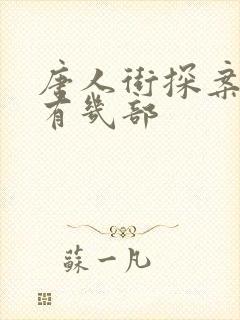 唐人街探案
有幾部
蘇一凡